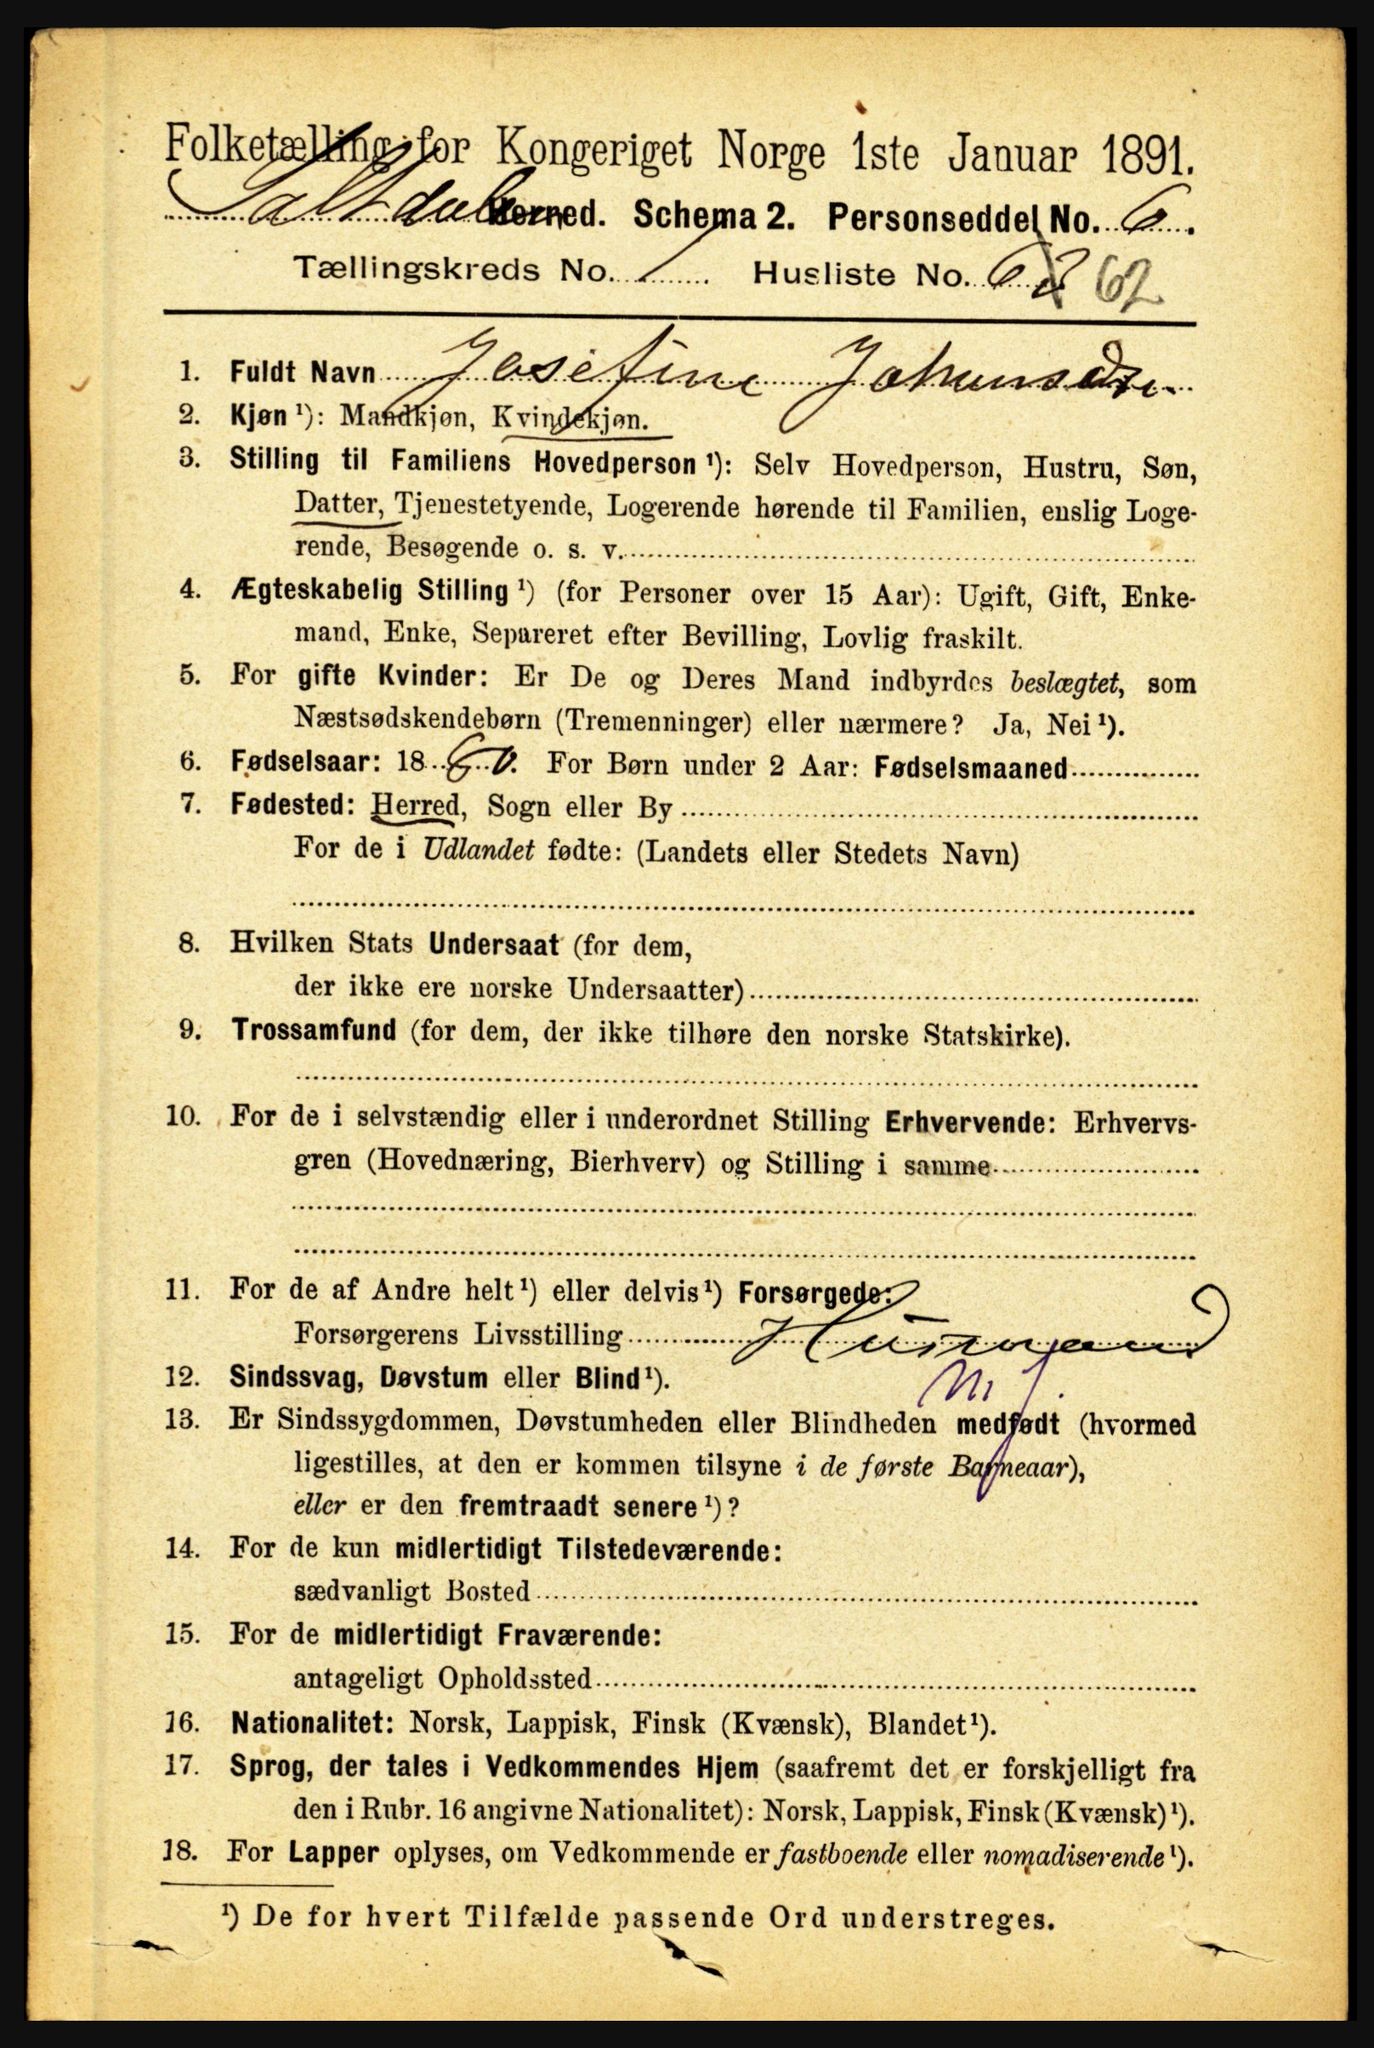 Folketælling for Kongeriget Norge 1ste Januar 1891.
Saltdalen Herred. Schema 2. Personseddel No. 6.
Tællingskreds No. 1 Husliste No. 62
1. Fuldt Navn Josefine
2. Kjøn ¹): Mandkjøn, Kvindekjøn.
3. Stilling til Familiens Hovedperson ¹): Selv Hovedperson, Hustru, Søn,
Datter, Tjenestetyende, Logerende hørende til Familien, enslig Loge-
rende, Besøgende o. s. v.
4. Ægteskabelig Stilling ¹) (for Personer over 15 Aar): Ugift, Gift, Enke-
mand, Enke, Separeret efter Bevilling, Lovlig fraskilt.
5. For gifte Kvinder: Er De og Deres Mand indbyrdes beslægtet, som
Næstsødskendebørn (Tremenninger) eller nærmere? Ja, Nei ¹).
6. Fødselsaar: 18 For Børn under 2 Aar: Fødselsmaaned
7. Fødested: Herred, Sogn eller By
For de i Udlandet fødte: (Landets eller Stedets Navn)
8. Hvilken Stats Undersaat (for dem,
der ikke ere norske Undersaatter)
9. Trossamfund (for dem, der ikke tilhøre den norske Statskirke).
10. For de i selvstændig eller i underordnet Stilling Erhvervende: Erhvervs-
gren (Hovednæring, Bierhverv) og Stilling i samme
11. For de af Andre helt ¹) eller delvis ¹) Forsørgede:
Forsørgerens Livsstilling Husmand
12. Sindssvag, Døvstum eller Blind ¹).
13. Er Sindssygdommen, Døvstumheden eller Blindheden medfødt (hvormed
ligestilles, at den er kommen tilsyne i de første Barneaar),
eller er den fremtraadt senere ¹)?
14. For de kun midlertidigt Tilstedeværende:
sædvanligt Bosted
15. For de midlertidigt Fraværende:
antageligt Opholdssted
16. Nationalitet: Norsk, Lappisk, Finsk (Kvænsk), Blandet ¹).
17. Sprog, der tales i Vedkommendes Hjem (saafremt det er forskjelligt fra
den i Rubr. 16 angivne Nationalitet): Norsk, Lappisk, Finsk (Kvænsk) ¹).
18. For Lapper oplyses, om Vedkommende er fastboende eller nomadiserende ¹).
¹) De for hvert Tilfælde passende Ord understreges.